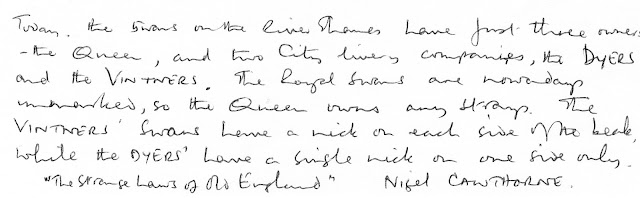 Today, the swans on the River Thames have just three owners
- the Queen, and two City livery companies, the DYERS
and the VINTNERS. The Royal Swans are nowadays
unmarked, so the Queen owns any strays. The
VINTNERS' Swans have a nick on each side of the beak,
while the DYERS' have a single nick on one side only.
"The Strange Laws of Old England" Nigel CAWTHORNE.